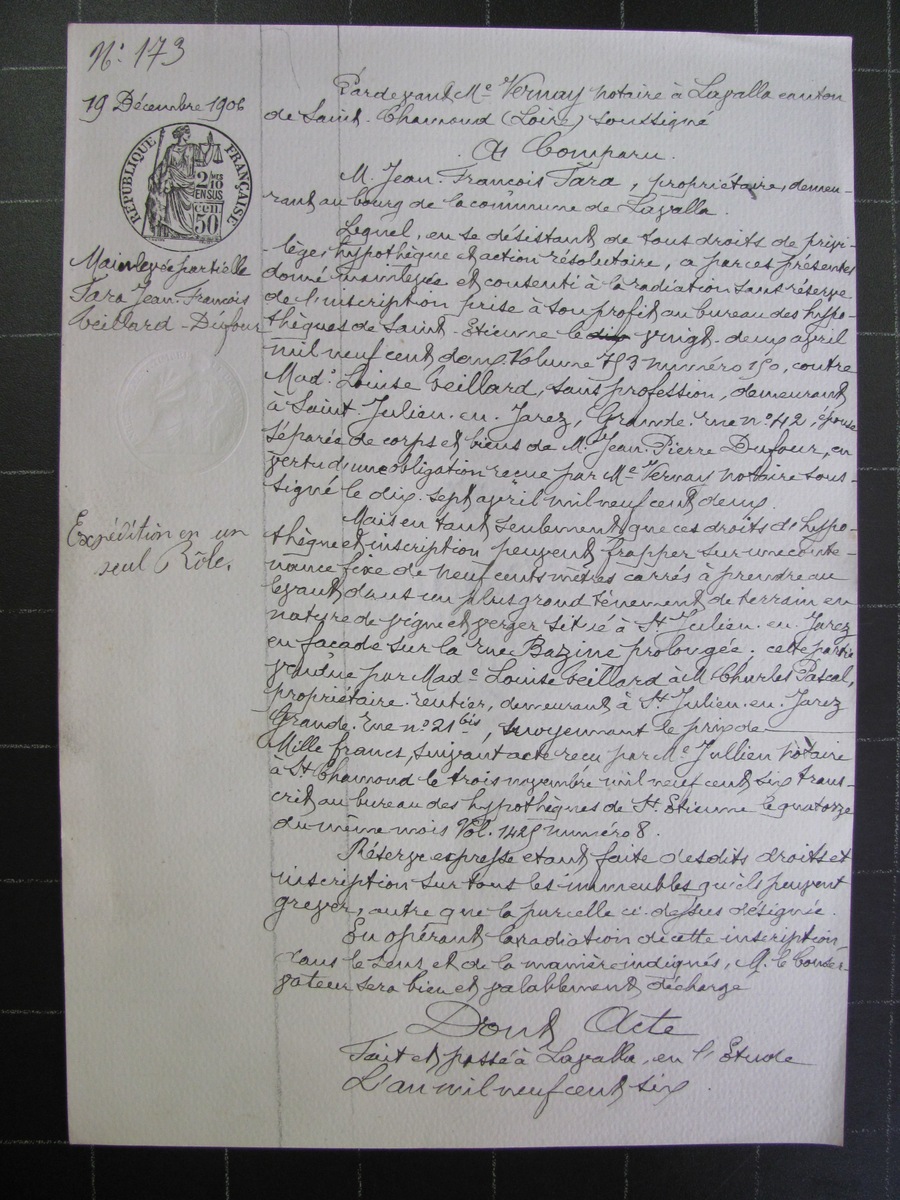 N: 173
19 Décembre 1906
RÉPUBLIQUE FRANÇAISE
2 MES
10
EN SUS
50
Mainlevée partielle
Fara Jean-François
Veillard-Dufour
Expédition en un
seul Rôle.
Pardevant Me Vernay notaire à Lavalla canton
de Saint-Chamond (Loire) soussigné
A Comparu.
M. Jean-François Fara, propriétaire, demeu-
rant au bourg de la commune de Lavalla.
Lequel, en se désistant de tous droits de privi-
lège, hypothèque et action résolutoire, a par ces présentes
donné mainlevée et consenti à la radiation sans réserve
de l'inscription prise à son profit au bureau des hypo-
thèques de Saint-Etienne le dix vingt-deux avril
mil neuf cent deux Volume 753 numéro 150, contre
Made Louise Veillard, sans profession, demeurant
à Saint-Julien-en-Jarez, Grande-rue no 42, épouse
séparée de corps et biens de M. Jean-Pierre Dufour, en
vertu d'une obligation reçue par Me Vernay notaire sous-
signé le dix-sept avril mil neuf cent deux
Mais en tant seulement que ces droits de hypo-
thèque et inscription peuvent frapper sur une conte-
nance fixe de neuf cents mètres carrés à prendre au
levant dans un plus grand tènement de terrain en
nature de vigne et verger situé à St Julien-en-Jarez
en façade sur la rue Bazine prolongée: cette partie
vendue par Made Louise Veillard à M. Charles Pascal,
propriétaire-rentier, demeurant à St Julien-en-Jarez
Grande-Rue no 21 bis, moyennant le prix de
Mille francs, suivant acte reçu par Me Jullien Notaire
à St Chamond le trois novembre mil neuf cent six trans-
crit au bureau des hypothèques de St Etienne le quatorze
du même mois Vol. 1425 numéro 8.
Réserve expresse étant faite desdits droits et
inscription sur tous les immeubles qu'ils peuvent
grever, autre que la parcelle ci-dessus désignée.
En opérant la radiation de cette inscription,
dans le sens et de la manière indiqués, M. le Conser-
vateur sera bien et valablement déchargé
Dont Acte
Fait et passé à Lavalla, en l'Etude
L'an mil neuf cent six.